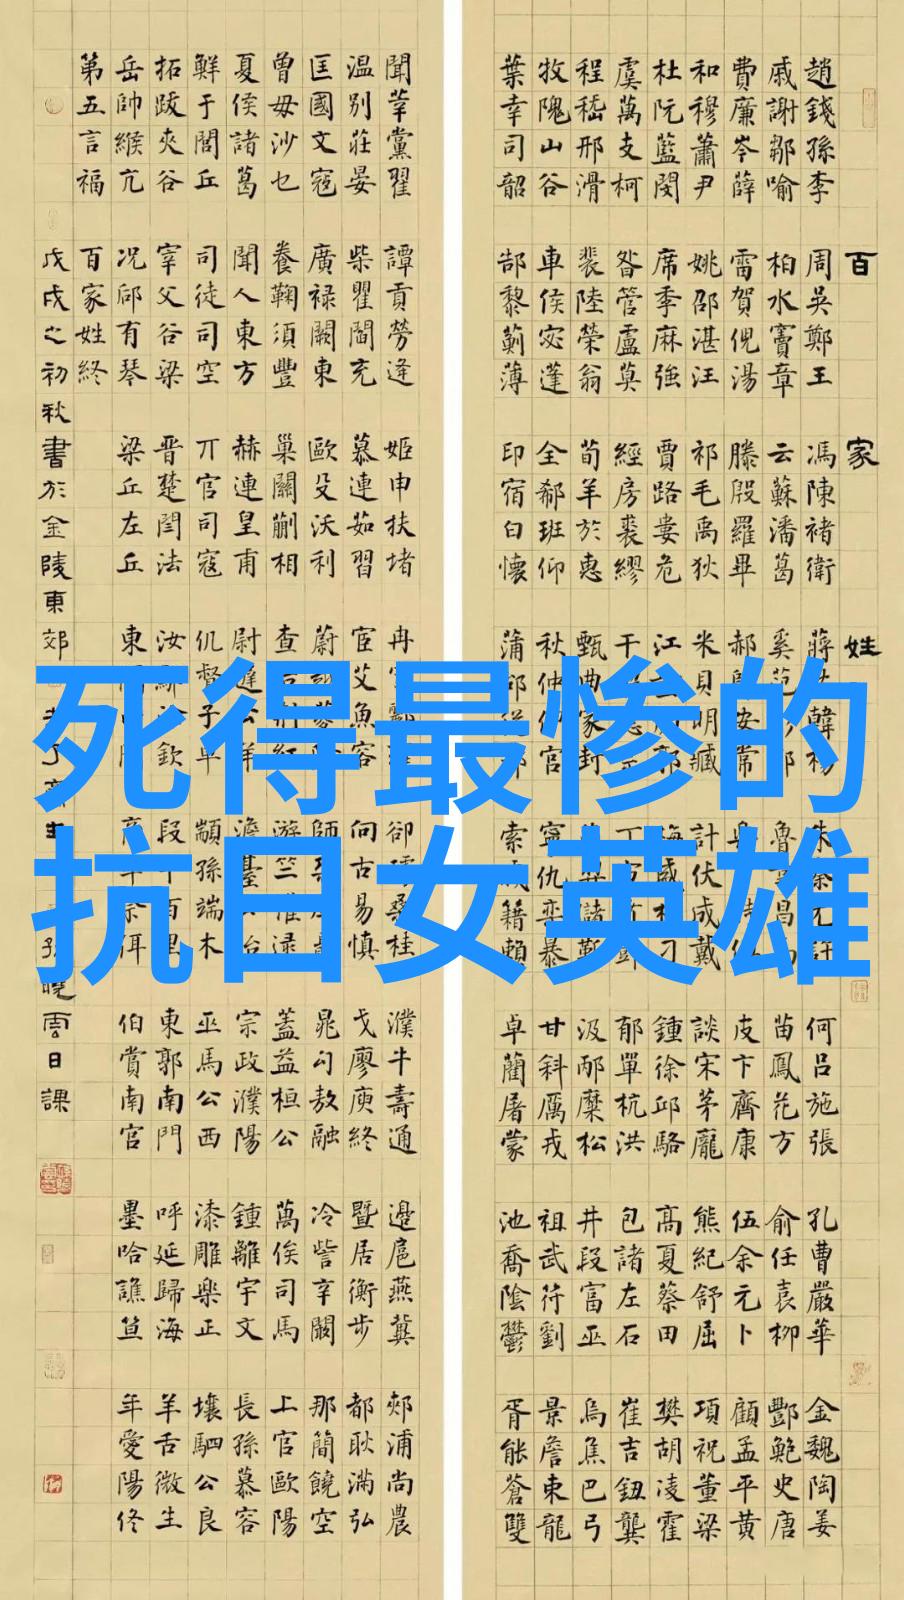 百家姓
趙錢孫李 周吳鄭王 馮陳褚衛 蔣韓楊 朱 何呂施張 孔曹嚴華 金魏陶姜
戚謝鄒喻 柏水竇章 云蘇潘葛 奚范 魯昌 苗鳳花方 俞任袁柳 酆鮑史唐
費廉岑薛 雷賀倪湯 滕殷羅畢 郝安常 皮卞齊康 伍余元卜 顧孟平黃
和穆蕭尹 姚邵湛汪 祁毛禹狄 米貝明臧 計伏成戴 談宋茅龐 熊紀舒屈 項祝董梁
杜阮藍閔 席季麻強 賈路婁危 江 鍾徐邱駱 高夏蔡田 樊胡凌霍
虞萬支柯 昝管盧莫 經房裘繆 干 丁 郁單杭洪 包諸左石 崔吉鈕龔
程嵇邢滑 裴陸榮翁 荀羊於惠 甄家封 儲靳 汲邴糜松 井段富巫 烏焦巴弓
牧隗山谷 車侯宓蓬 全郗班仰 秋仲 寧仇暴 甘斜厲戎 祖武符劉 景詹束龍
葉幸司韶 郜黎薊薄 印宿白懷 蒲 索籍賴 卓藺屠蒙 池喬陰鬱 胥能蒼雙
聞莘黨翟 譚貢勞逄 姬申扶堵 冉 郤桑桂 濮牛壽通 邊扈燕冀 郟浦尚農
温別莊晏 柴瞿閻充 慕連茹習 宦艾魚容 向古易慎 戈廖庾終 暨居衡步 都耿滿弘
匡國文寇 廣禄闕東 歐殳沃利 蔚 師 晁勾敖融 冷訾辛闞 那簡饒空
曾毋沙乜 養鞠須豐 巢關蒯相 查 游竺逯 蓋益桓公 萬俟司馬 上官歐陽
夏侯諸葛 聞人東方 赫連皇甫 尉遲公羊 澹臺 宗政濮陽 鍾離宇文 長孫慕容
鮮于閭丘 司徒司空 丌官司寇 仉督子車 顓孫端木 巫馬公西 漆雕樂正 壤駟公良
拓跋夾谷 宰父谷梁 晋楚閆法 汝欽 段百里 東郭南門 呼延歸海 羊舌微生
岳帥緱亢 况郈有琴 梁丘左丘 東 伯賞南宮 墨哈譙笪 年愛陽佟
第五言福 百家姓終
戊戌之初秋書於金陵東郊 曉雲日課
死得最惨的
抗日女英雄